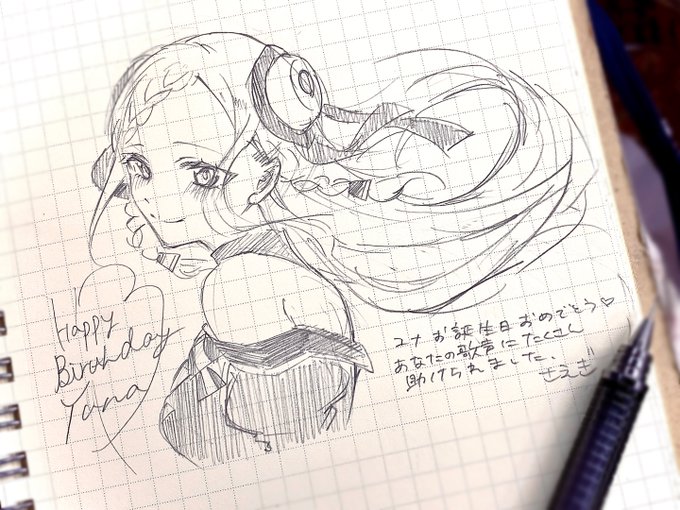 Happy
Birthday
Yuna
ユナ お誕生日おめでとう♡
あなたの歌声にたくさん
助けられました。
さえぎ